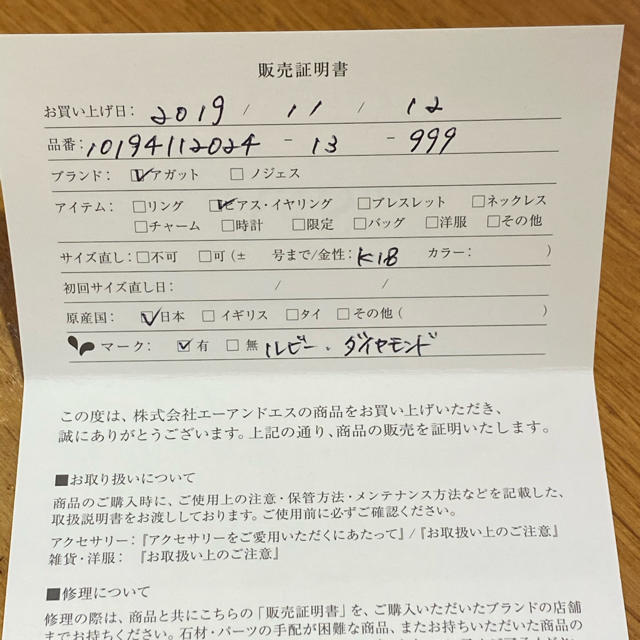 販売証明書
お買い上げ日: 2019 / 11 / 12
品番: 10194112024 - 13 - 999
ブランド: ☑アガット □ノジェス
アイテム: □リング ☑ピアス・イヤリング □ブレスレット □ネックレス
□チャーム □時計 □限定 □バッグ □洋服 □その他
サイズ直し: □不可 □可(± 号まで/金性: K18 カラー: )
初回サイズ直し日: / /
原産国: ☑日本 □イギリス □タイ □その他( )
マーク: ☑有 □無 ルビー、ダイヤモンド
この度は、株式会社エーアンドエスの商品をお買い上げいただき、
誠にありがとうございます。上記の通り、商品の販売を証明いたします。
■お取り扱いについて
商品のご購入時に、ご使用上の注意・保管方法・メンテナンス方法などを記載した、
取扱説明書をお渡ししております。ご使用前に必ずご確認ください。
アクセサリー:『アクセサリーをご愛用いただくにあたって』/『お取扱い上のご注意』
雑貨・洋服: 『お取扱い上のご注意』
■修理について
修理の際は、商品と共にこちらの「販売証明書」を、ご購入いただいたブランドの店舗
までお持ちください。石材・パーツの手配が困難な商品、またお持ちいただいた商品の